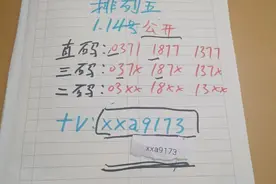 排列五
1.145公开
直码:0371 1877 1377
三码:037x 187x 137x
二码:03xx 18xx 13xx
+V:xxa9173
xxa9173